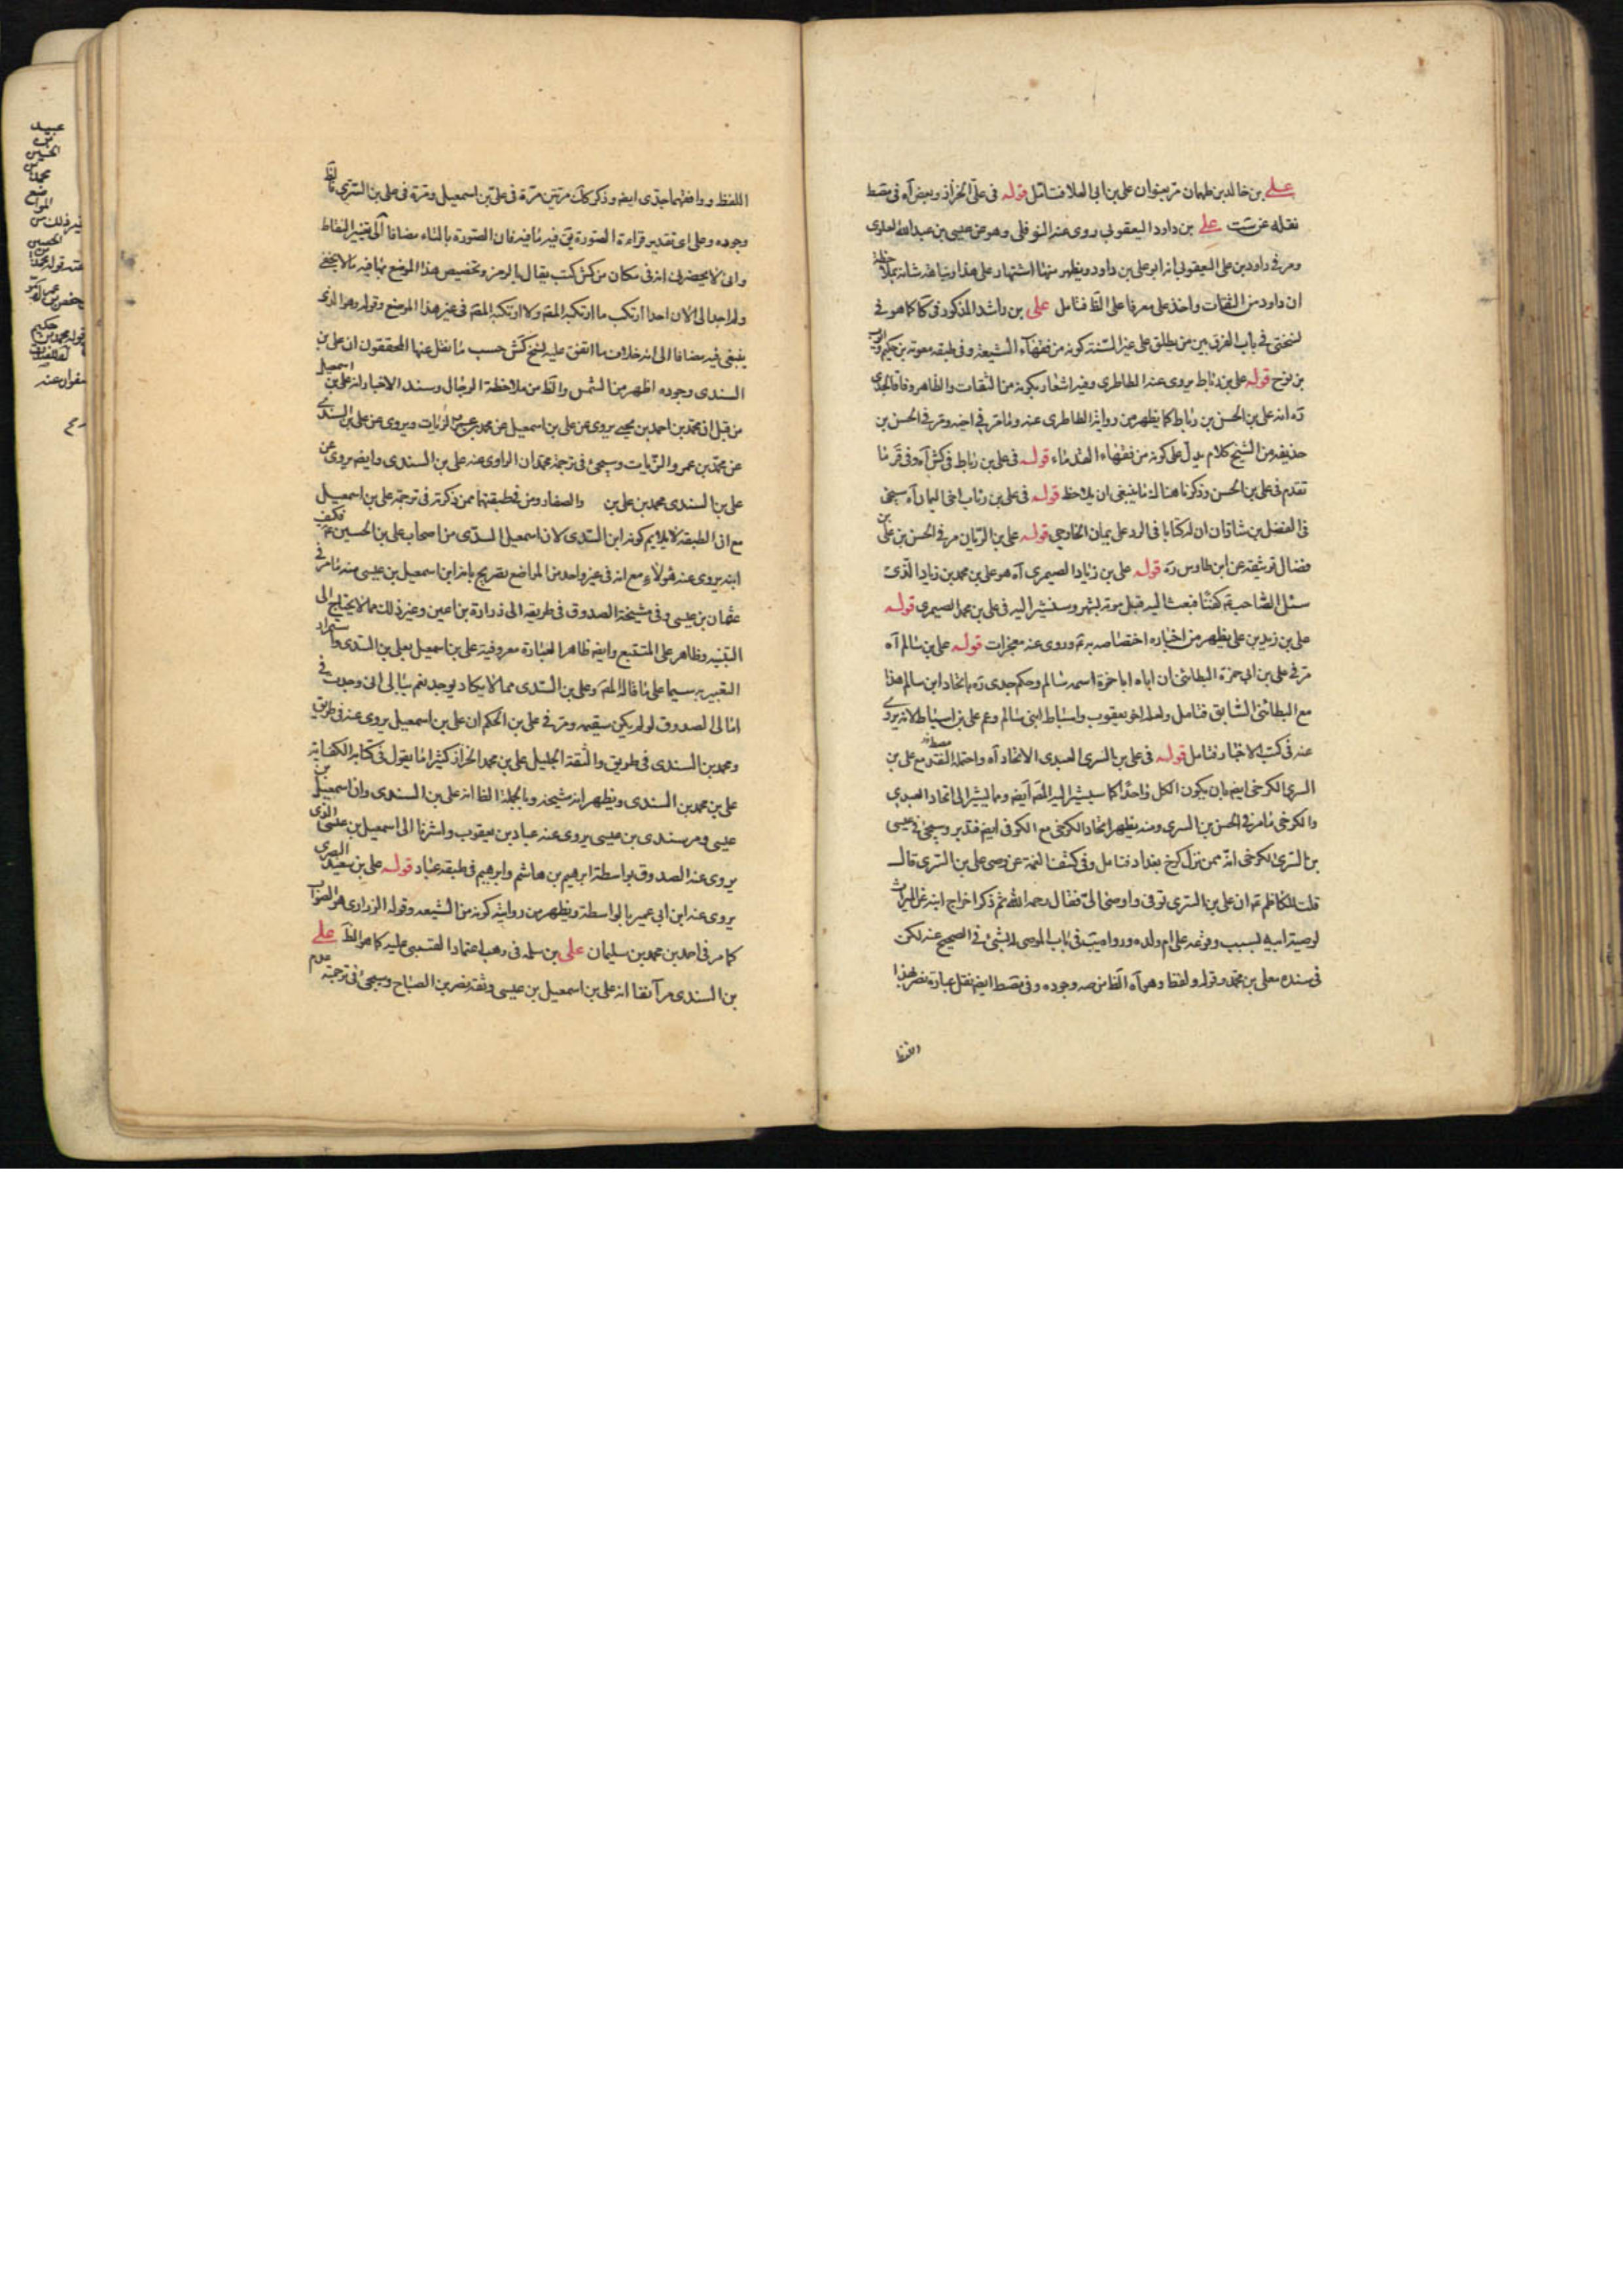 علي بن خالد بن طهمان مر بعنوان علي بن ابي العلا فتامل قوله في علي الخزاز وبعض آه في مصط
نقله عن ست علي بن داود اليعقوبي روى عنه النوفلي وهو عن عيسى بن عبدالله العلوي
ومر في داود بن علي اليعقوبي انه ابو علي بن داود ويظهر منهما اشتهار علي هذا
ان داود من الثقات واخذ علي معرفا على الظ فتامل علي بن راشد المذكور في كا كما هو في
نسختي في باب الفرق بين من طلق على غير السنة كونه من فقهاء الشيعة وفي طبقة معوية بن حكيم
بن نوح قوله علي بن رباط يروى عنه الطاطري وفيه اشعار بكونه من الثقات والظاهر وفاقا لجدي
ره انه علي بن الحسن بن رباط كما يظهر من رواية الطاطري عنه ولما مر في اخيه ومر في الحسن بن
حذيفة من الشيخ كلام يدل على كونه من فقهاء القدماء قوله في علي بن رباط في كش آه وفي قر ما
تقدم في علي بن الحسن وذكرنا هناك ما ينبغي ان يلاحظ قوله في علي بن رئاب اخي اليمان آه سيجئ
في الفضل بن شاذان ان له كتابا في الرد على يمان الخارجي قوله علي بن الريان مر في الحسن بن علي بن
فضال توثيقه عن ابن طاوس ره قوله علي بن زياد الصيمري آه هو علي بن محمد بن زياد الذي
سئل الصاحب ع كفنا فبعث اليه قبل موته بشهر وسنشير اليه في علي بن محمد الصيمري قوله
علي بن زيد بن علي يظهر من اخباره اختصاصه به ع وروى عنه معجزات قوله علي بن سالم آه
مر في علي بن ابي حمزة البطائني ان اباه ابا حمزة اسمه سالم وحكم جدي ره باتحاد ابن سالم هذا
مع البطائني السابق فتامل ولعله اخو يعقوب واسباط ابني سالم وعم علي بن اسباط لانه يروي
عنه في كتب الاخبار فتامل قوله في علي بن السري العبدي الاتحاد آه واحتمله مع علي بن
السري الكرخي ايضه بان يكون الكل واحدا كما سيشير اليه المصه ايضه ومما يشير الى اتحاد العبدي
والكرخي ما مر في الحسن بن السري ومنه يظهر اتحاد الكرخي مع الكوفي ايضه فتدبر وسيجئ في عيسى
بن السري الكرخي انه ممن نزل كرخ بغداد فتامل وفي كشف الغمة عن وصي علي بن السري قال
قلت للكاظم ع ان علي بن السري توفي واوصى الي فقال رحمه الله ثم ذكر اخراج ابنه عن الميراث
لوصية ابيه لسبب وقوعه على ام ولده وروايته في باب الوصى الشئ في الصحيح عنه لكن
في سنده معلى بن محمد وقوله ولفظ وهو آه الظ وجوده وفي مصط ايضه نقل عبارة بهذا
اللفظ
اللفظ ووافقهما جدي ايضه وذكر كك مرتين مرة في علي بن اسمعيل ومرة في علي بن السري فالظ
وجوده وعلى اي تقدير قراءة الصورة فيه ما فيه فان الصورة بالتاء مضافا الى تغيير النقاط
واني لا يحضرني انه في مكان من كش كتب يقال بالرمز وتخصيص هذا الموضع بها فيه ما لا يخفى
ولم اجد الى الان احدا ارتكب ما ارتكبه المصه ولا ارتكبه المصه في غير هذا الموضع وقوله وهو الذي
ينبغي فيه مضافا الى انه خلاف ما اتفق عليه نسخ كش حسب ما نقل عنها المحققون ان علي بن
السندي وجوده اظهر من الشمس والظ من ملاحظة الرجال وسند الاخبار انه علي بن اسمعيل
من قبل ان محمد بن احمد بن يحيى يروي عن علي بن اسمعيل عن محمد بن عمرو الزيات ويروى عن علي بن السندي
عن محمد بن عمرو الزيات وسيجئ في ترجمة محمد ان الراوي عنه علي بن السندي وايضه يروي عن
علي بن السندي محمد بن علي بن والصفار ومن في طبقتهما ممن ذكرته في ترجمة علي بن اسمعيل
مع ان الطبقة لا يلايم كونه ابن السدي لان اسمعيل السدي من اصحاب علي بن الحسين ع فكيف
ابنه يروي عنه هؤلاء مع انه في غير واحد من المواضع تصريح بانه ابن اسمعيل بن عيسى منه ما مر في
عثمان بن عيسى وفي مشيخة الصدوق في طريقه الى زرارة بن اعين وغير ذلك مما لا يحتاج الى
التنبيه وظاهر على المتتبع وايضه ظاهر العبارة معروفية علي بن اسمعيل بعلي بن السدي
التعبير به سيما على ما قاله المصه وعلي بن السدي مما لا يكاد يوجد نعم ببالي اني وجدت في
امالي الصدوق لو لم يكن سقيمه ومر في علي بن الحكم ان علي بن اسمعيل يروى عنه في طريق
ومحمد بن السندي في طريق والثقة الجليل علي بن محمد الخزاز كثيرا ما يقول في كتابه الكفاية
علي بن محمد بن السندي ويظهر انه شيخه وبالجملة الظ انه علي بن السندي وان اسمعيل بن
عيسى ومر سندي بن عيسى يروى عنه عباد بن يعقوب واشرنا الى اسمعيل بن عيسى الذي
يروى عنه الصدوق بواسطة ابرهيم بن هاشم وابرهيم في طبقة عباد قوله علي بن سعيد البصري
يروى عنه ابن ابي عمير بالواسطة ويظهر من روايته كونه من الشيعه وقوله الزراري هو الصواب
كما مر في احمد بن محمد بن سليمان علي بن سلمه في وهب اعتماد العقيقي عليه كما هو الظ علي
بن السندي مر آنفا انه علي بن اسمعيل بن عيسى وثقه نصر بن الصباح وسيجئ في ترجمته
عبيد
بن
الحسين
محمد
المواضع
فيه ذلك من
الحسين